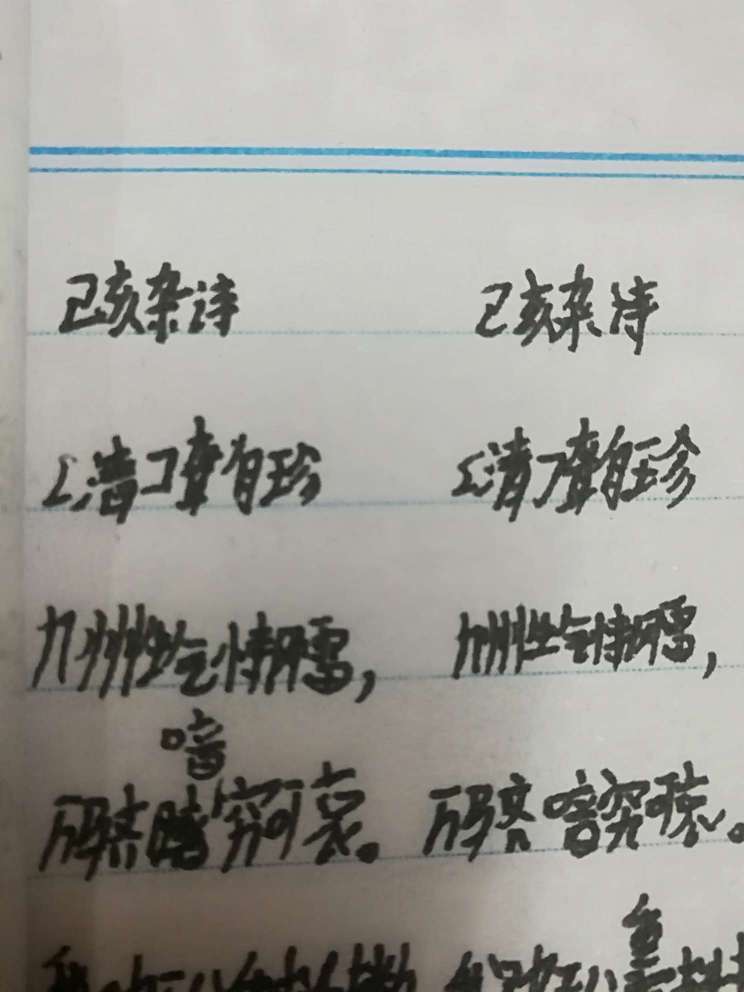 己亥杂诗 己亥杂诗
[清]龚自珍 [清]龚自珍
九州生气恃风雷, 九州生气恃风雷,
喑
万马齐喑究可哀。 万马齐喑究可哀。